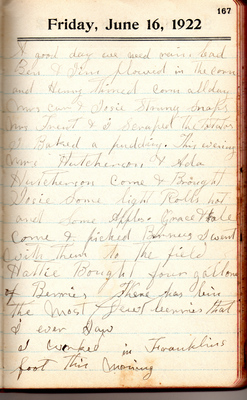 167
Friday, June 16, 1922
A good day we need rain bad
Ben & Jim plowed in the corn
and Henry thined corn all day
& Josie Strung Snaps
& I Scraped the
I Baked a pudding. This evening
Hutcherson & Ada
Hutcherson Come & Brought
Josie Some light Rolls hot
and Some Apples Grace &
Come & picked Berries I went
with them to the field
Hattie Bought four gallons
of Berries There has bin
the most Dew berries that
I ever Saw
I worked in Franklins
foot this morning